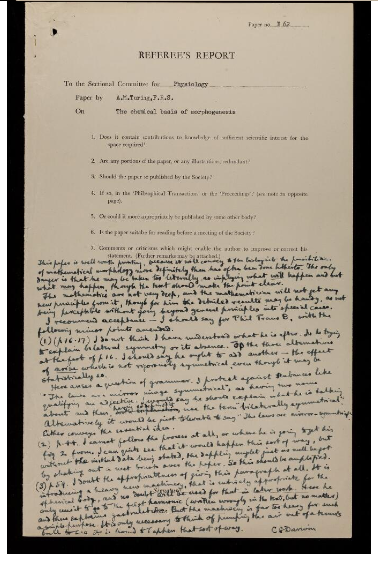 Paper no. B 62
REFEREE'S REPORT
To the Sectional Committee for Physiology
Paper by A.M.Turing,F.R.S.
On The chemical basis of morphogenesis
1. Does it contain contributions to knowledge of sufficient scientific interest for the
space required?
2. Are any portions of the paper, or any illustrations, redundant?
3. Should the paper be published by the Society?
4. If so, in the 'Philosophical Transactions' or the 'Proceedings'? (see note to opposite
page).
5. Or could it more appropriately be published by some other body?
6. Is the paper suitable for reading before a meeting of the Society?
7. Comments or criticisms which might enable the author to improve or correct his
statement. (Further remarks may be attached.)
This paper is well worth printing, because it will convey to the biologists the possibilities
of mathematical morphology more definitely than has often been done hitherto. The only
danger is that he may be taken too literally as implying what will happen and not
what may happen, though he should make the point clear.
The mathematics are not very deep, and the mathematician will not get any
new principles from it, though for him the detailed results may be handy, as not
being perceptible without going beyond general principles into special cases.
I recommend acceptance — I should say for Phil Trans B, with the
following minor points amended.
(1) (p 16-17) I do not think I have understood what he is after. He is trying
to explain bilateral symmetry or its absence. To the three alternatives
at the foot of p16. I should say he ought to add another — the effect
of noise which is not rigorously symmetrical even though it may be
statistically so.
Here arises a question of grammar. I protest against
"The laws are mirror image symmetrical", as having two nouns
qualifying an adjective. I should say he should explain what he is
about and then use the term "bilaterally symmetrical".
Alternatively it would be just tolerable to say "The laws are mirror-symmetric"
Either conveys the essential idea.
(2) p.44. I cannot follow the process at all, or when he is going to get his
fig 2 from. I can quite see that it would happen this sort of way, but
without the initial data being stated, the dappling might just as well be got
by shaking out a wet brush over the paper. So this should be amplified.
(3) p 59. I doubt the appropriateness of giving this paragraph at all. It is
introducing a heavy new machinery, that is entirely appropriate for the
spherical body, and no doubt will be used for that in later work. Here he
only uses it to go to the first harmonic (written wrongly in the book, but no matter)
and thus explains gastrulation. But the machinery is far too heavy for such
a simple purpose. It is only necessary to think of pumping the air out of a tennis
ball to see it is bound to happen that sort of way.
C G Darwin